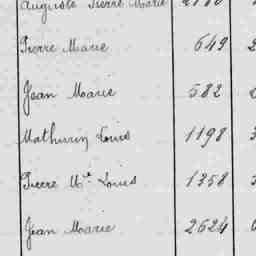 Auguste Pierre Marie
Pierre Marie 649
Jean Marie 582
Mathurin Louis 1198
Pierre Mie Louis 1358
Jean Marie 2624